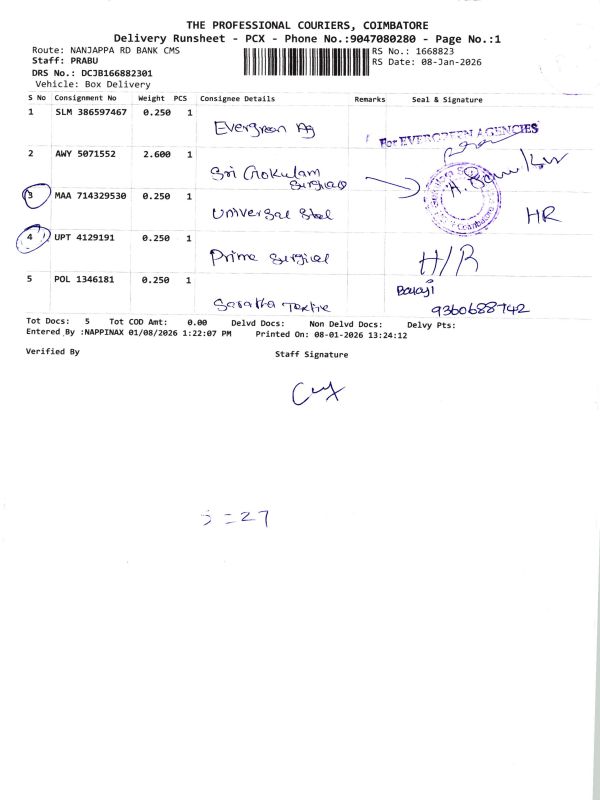 THE PROFESSIONAL COURIERS, COIMBATORE
Delivery Runsheet - PCX - Phone No.:9047080280 - Page No.:1
Route: NANJAPPA RD BANK CMS
RS No.: 1668823
Staff: PRABU
RS Date: 08-Jan-2026
DRS No.: DCJB166882301
Vehicle: Box Delivery
S No Consignment No Weight PCS Consignee Details Remarks Seal & Signature
1 SLM 386597467 0.250 1
Evergreen Ag
For EVERGREEN AGENCIES
2 AWY 5071552 2.600 1
Sri Gokulam
Surgicals
3 MAA 714329530 0.250 1
Universal Steel
HR
4 UPT 4129191 0.250 1
Prime Surgical
H/R
5 POL 1346181 0.250 1
Balaji
9360688742
Tot Docs: 5 Tot COD Amt: 0.00 Delvd Docs: Non Delvd Docs: Delvy Pts:
Entered By :NAPPINAX 01/08/2026 1:22:07 PM Printed On: 08-01-2026 13:24:12
Verified By
Staff Signature
= 27